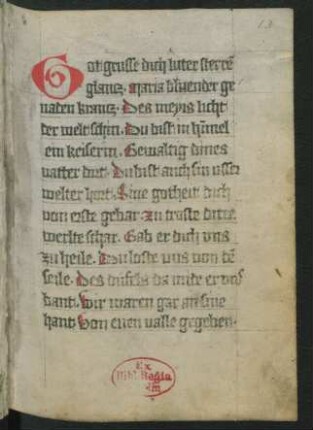 Got grusse dich luter sterrē
glantz. maria bluender ge
naden krantz. Des meyis licht
der welt schin. Du bist in hīmel
ein keiserin. Gewaltig dines
vatter Du bist auch sin
welter hort. Sine gotheit dich
von erste gebar. zu troste dirre
werlte schar. Gab er dich vns
zu heile. Du loste vns von dē
seile. Des tufels da mide er vns
bant. wir waren gar an sine
hant. Von euen valle gegeben.
Ex
Bibl. Regia